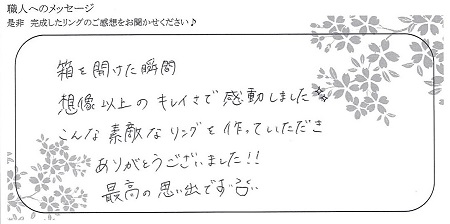 職人へのメッセージ
是非 完成したリングのご感想をお聞かせください♪
箱を開けた瞬間
想像以上のキレイさで感動しました
こんな素敵なリングを作っていただき
ありがとうございました!!
最高の思い出です